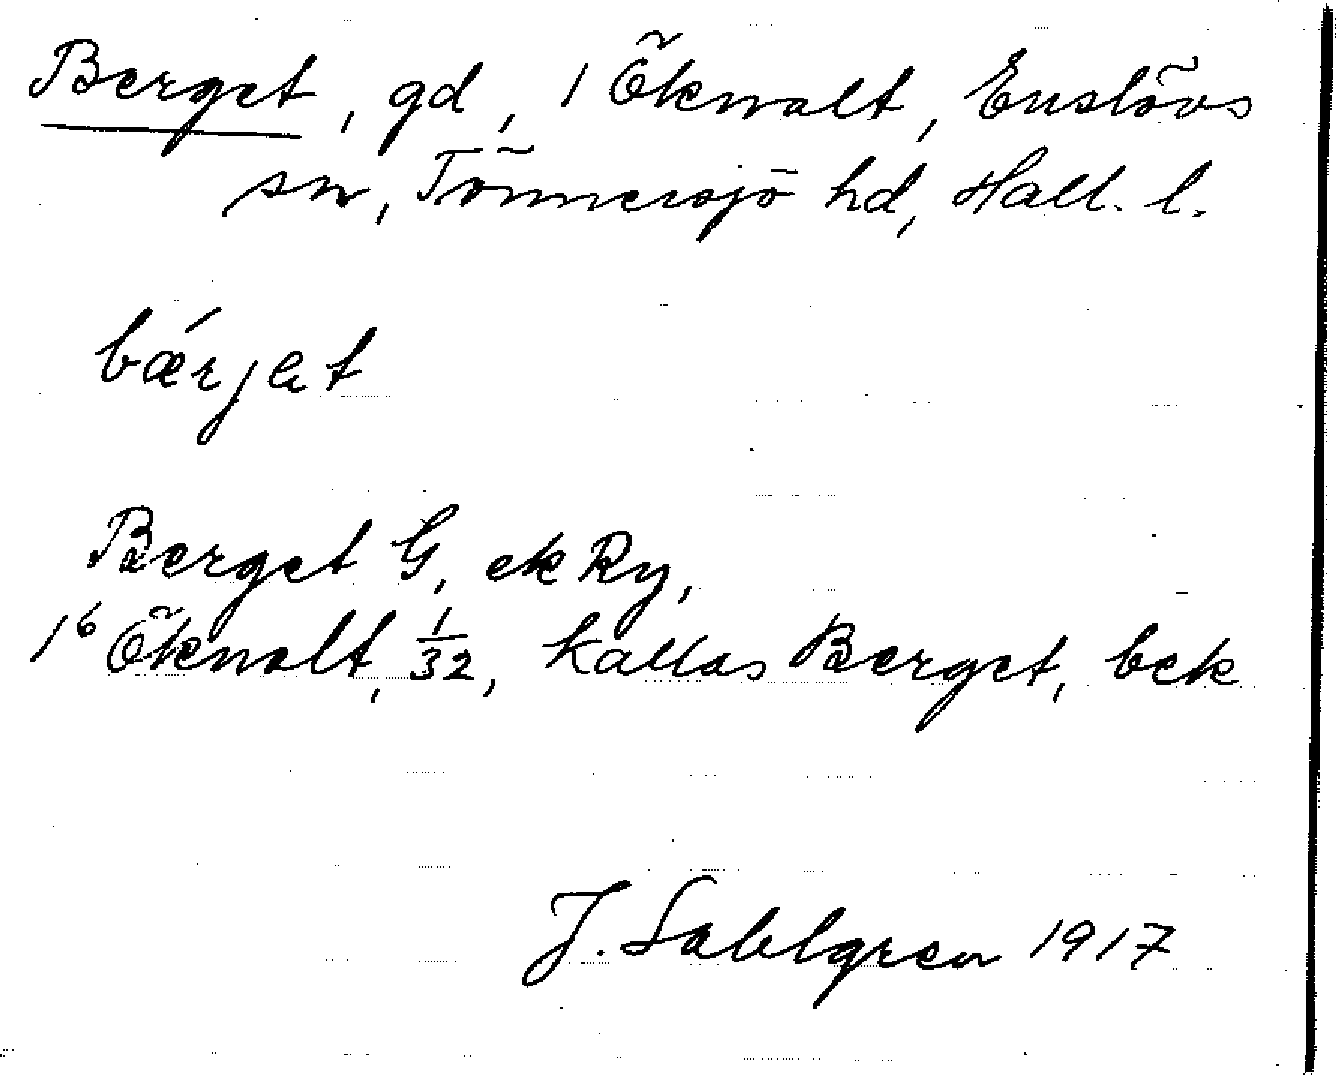 Berget, gd, 1 Öknalt, Enslövs
sn, Tönnersjö hd, Hall. l.
bǽrjet
Berget G, ek Ry,
1⁶ Öknalt, 1/32, kallas Berget, bek
J. Sahlgren 1917